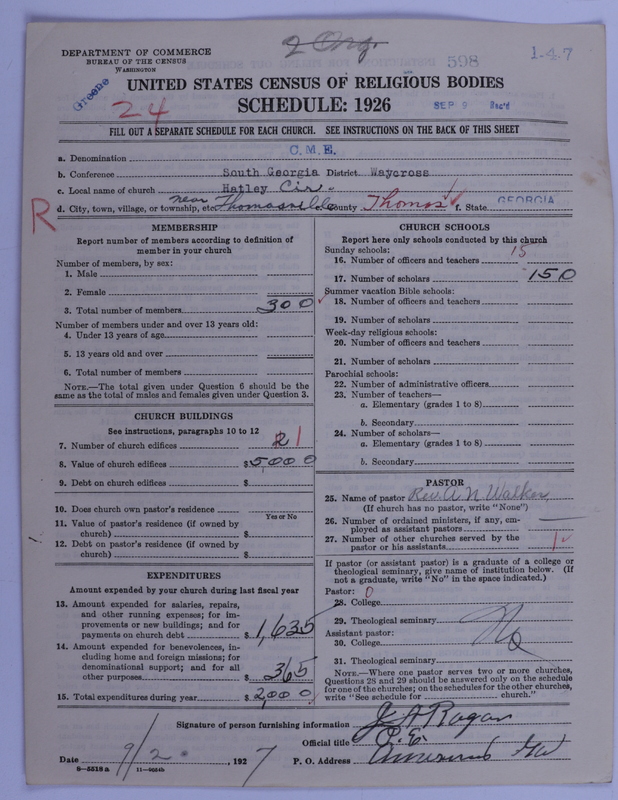 2 Org.
DEPARTMENT OF COMMERCE
BUREAU OF THE CENSUS
WASHINGTON
598
1-4-7
Greene
UNITED STATES CENSUS OF RELIGIOUS BODIES
24
SCHEDULE: 1926
SEP 9 Rec'd
FILL OUT A SEPARATE SCHEDULE FOR EACH CHURCH. SEE INSTRUCTIONS ON THE BACK OF THIS SHEET
a. Denomination C.M.E.
b. Conference South Georgia District Waycross
c. Local name of church Hatley Cir.
R d. City, town, village, or township, etc. near Thomasville e. County Thomas f. State GEORGIA
MEMBERSHIP
Report number of members according to definition of
member in your church
Number of members, by sex:
1. Male
2. Female
3. Total number of members 300
Number of members under and over 13 years old:
4. Under 13 years of age
5. 13 years old and over
6. Total number of members
NOTE.—The total given under Question 6 should be the
same as the total of males and females given under Question 3.
CHURCH BUILDINGS
See instructions, paragraphs 10 to 12
7. Number of church edifices 1
8. Value of church edifices $5,000
9. Debt on church edifices $
10. Does church own pastor's residence
Yes or No
11. Value of pastor's residence (if owned by
church) $
12. Debt on pastor's residence (if owned by
church) $
EXPENDITURES
Amount expended by your church during last fiscal year
13. Amount expended for salaries, repairs,
and other running expenses; for im-
provements or new buildings; and for
payments on church debt $1,635
14. Amount expended for benevolences, in-
cluding home and foreign missions; for
denominational support; and for all
other purposes $365
15. Total expenditures during year $2,000
CHURCH SCHOOLS
Report here only schools conducted by this church
Sunday schools:
16. Number of officers and teachers 15
17. Number of scholars 150
Summer vacation Bible schools:
18. Number of officers and teachers
19. Number of scholars
Week-day religious schools:
20. Number of officers and teachers
21. Number of scholars
Parochial schools:
22. Number of administrative officers
23. Number of teachers—
a. Elementary (grades 1 to 8)
b. Secondary
24. Number of scholars—
a. Elementary (grades 1 to 8)
b. Secondary
PASTOR
25. Name of pastor Rev. A N Walker
(If church has no pastor, write "None")
26. Number of ordained ministers, if any, em-
ployed as assistant pastors
27. Number of other churches served by the
pastor or his assistants 1
If pastor (or assistant pastor) is a graduate of a college or
theological seminary, give name of institution below. (If
not a graduate, write "No" in the space indicated.)
Pastor: 0
28. College
29. Theological seminary No
Assistant pastor:
30. College
31. Theological seminary
NOTE.—Where one pastor serves two or more churches,
Questions 28 and 29 should be answered only on the schedule
for one of the churches; on the schedules for the other churches,
write "See schedule for church."
Signature of person furnishing information J A Rogan
Official title P. E.
Date 9/2, 1927 P. O. Address Americus Ga
8—5518a 11—9034b